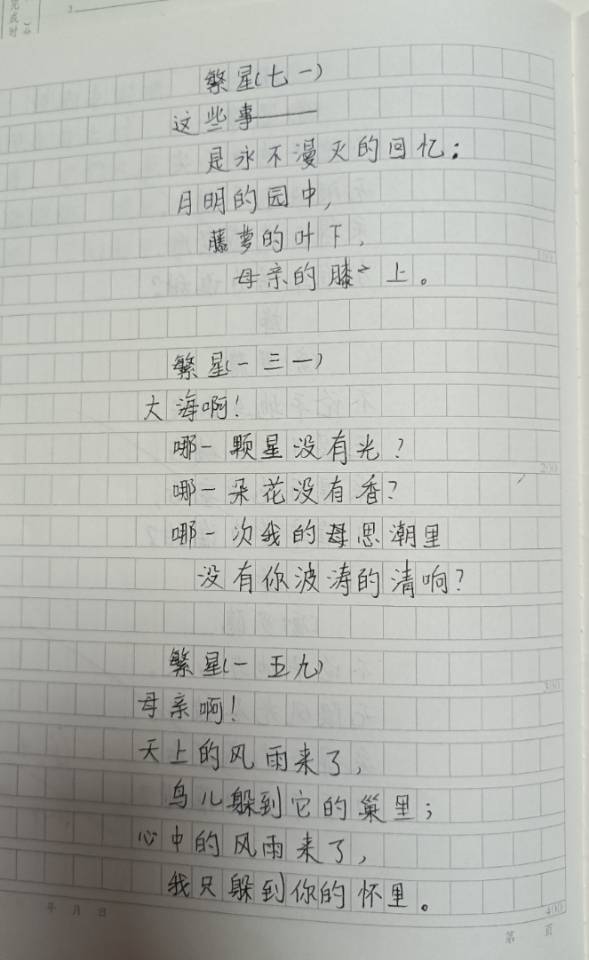 完成时
繁星(七一)
这些事——
是永不漫灭的回忆:
月明的园中,
藤萝的叶下,
母亲的膝上。
繁星(一三一)
大海啊!
哪一颗星没有光?
哪一朵花没有香?
哪一次我的思潮里
没有你波涛的清响?
繁星(一五九)
母亲啊!
天上的风雨来了,
鸟儿躲到它的巢里;
心中的风雨来了,
我只躲到你的怀里。
年 月 日
400
第 页